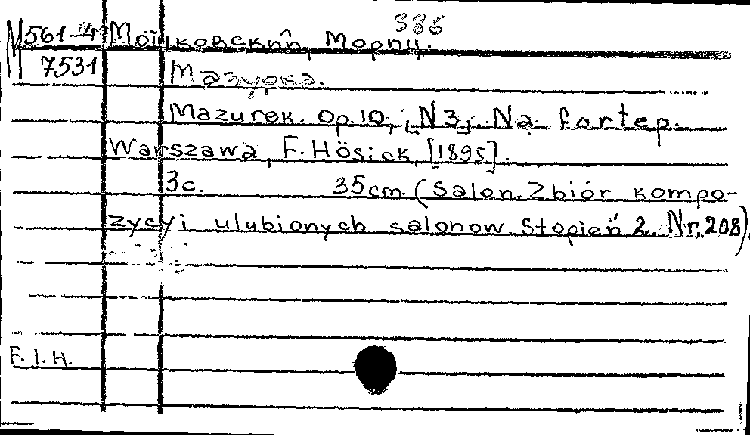 386
М 561-4 Мошковский, Мориц.
7531 Мазурка.
Mazurek. Op.10, N 3, Na fortep.
Warszawa, F. Hösick, [1895].
3c. 35cm (Salon. Zbiór kompo-
zycyi ulubionych salonow. Stopień 2. Nr. 208)
F. I. H.